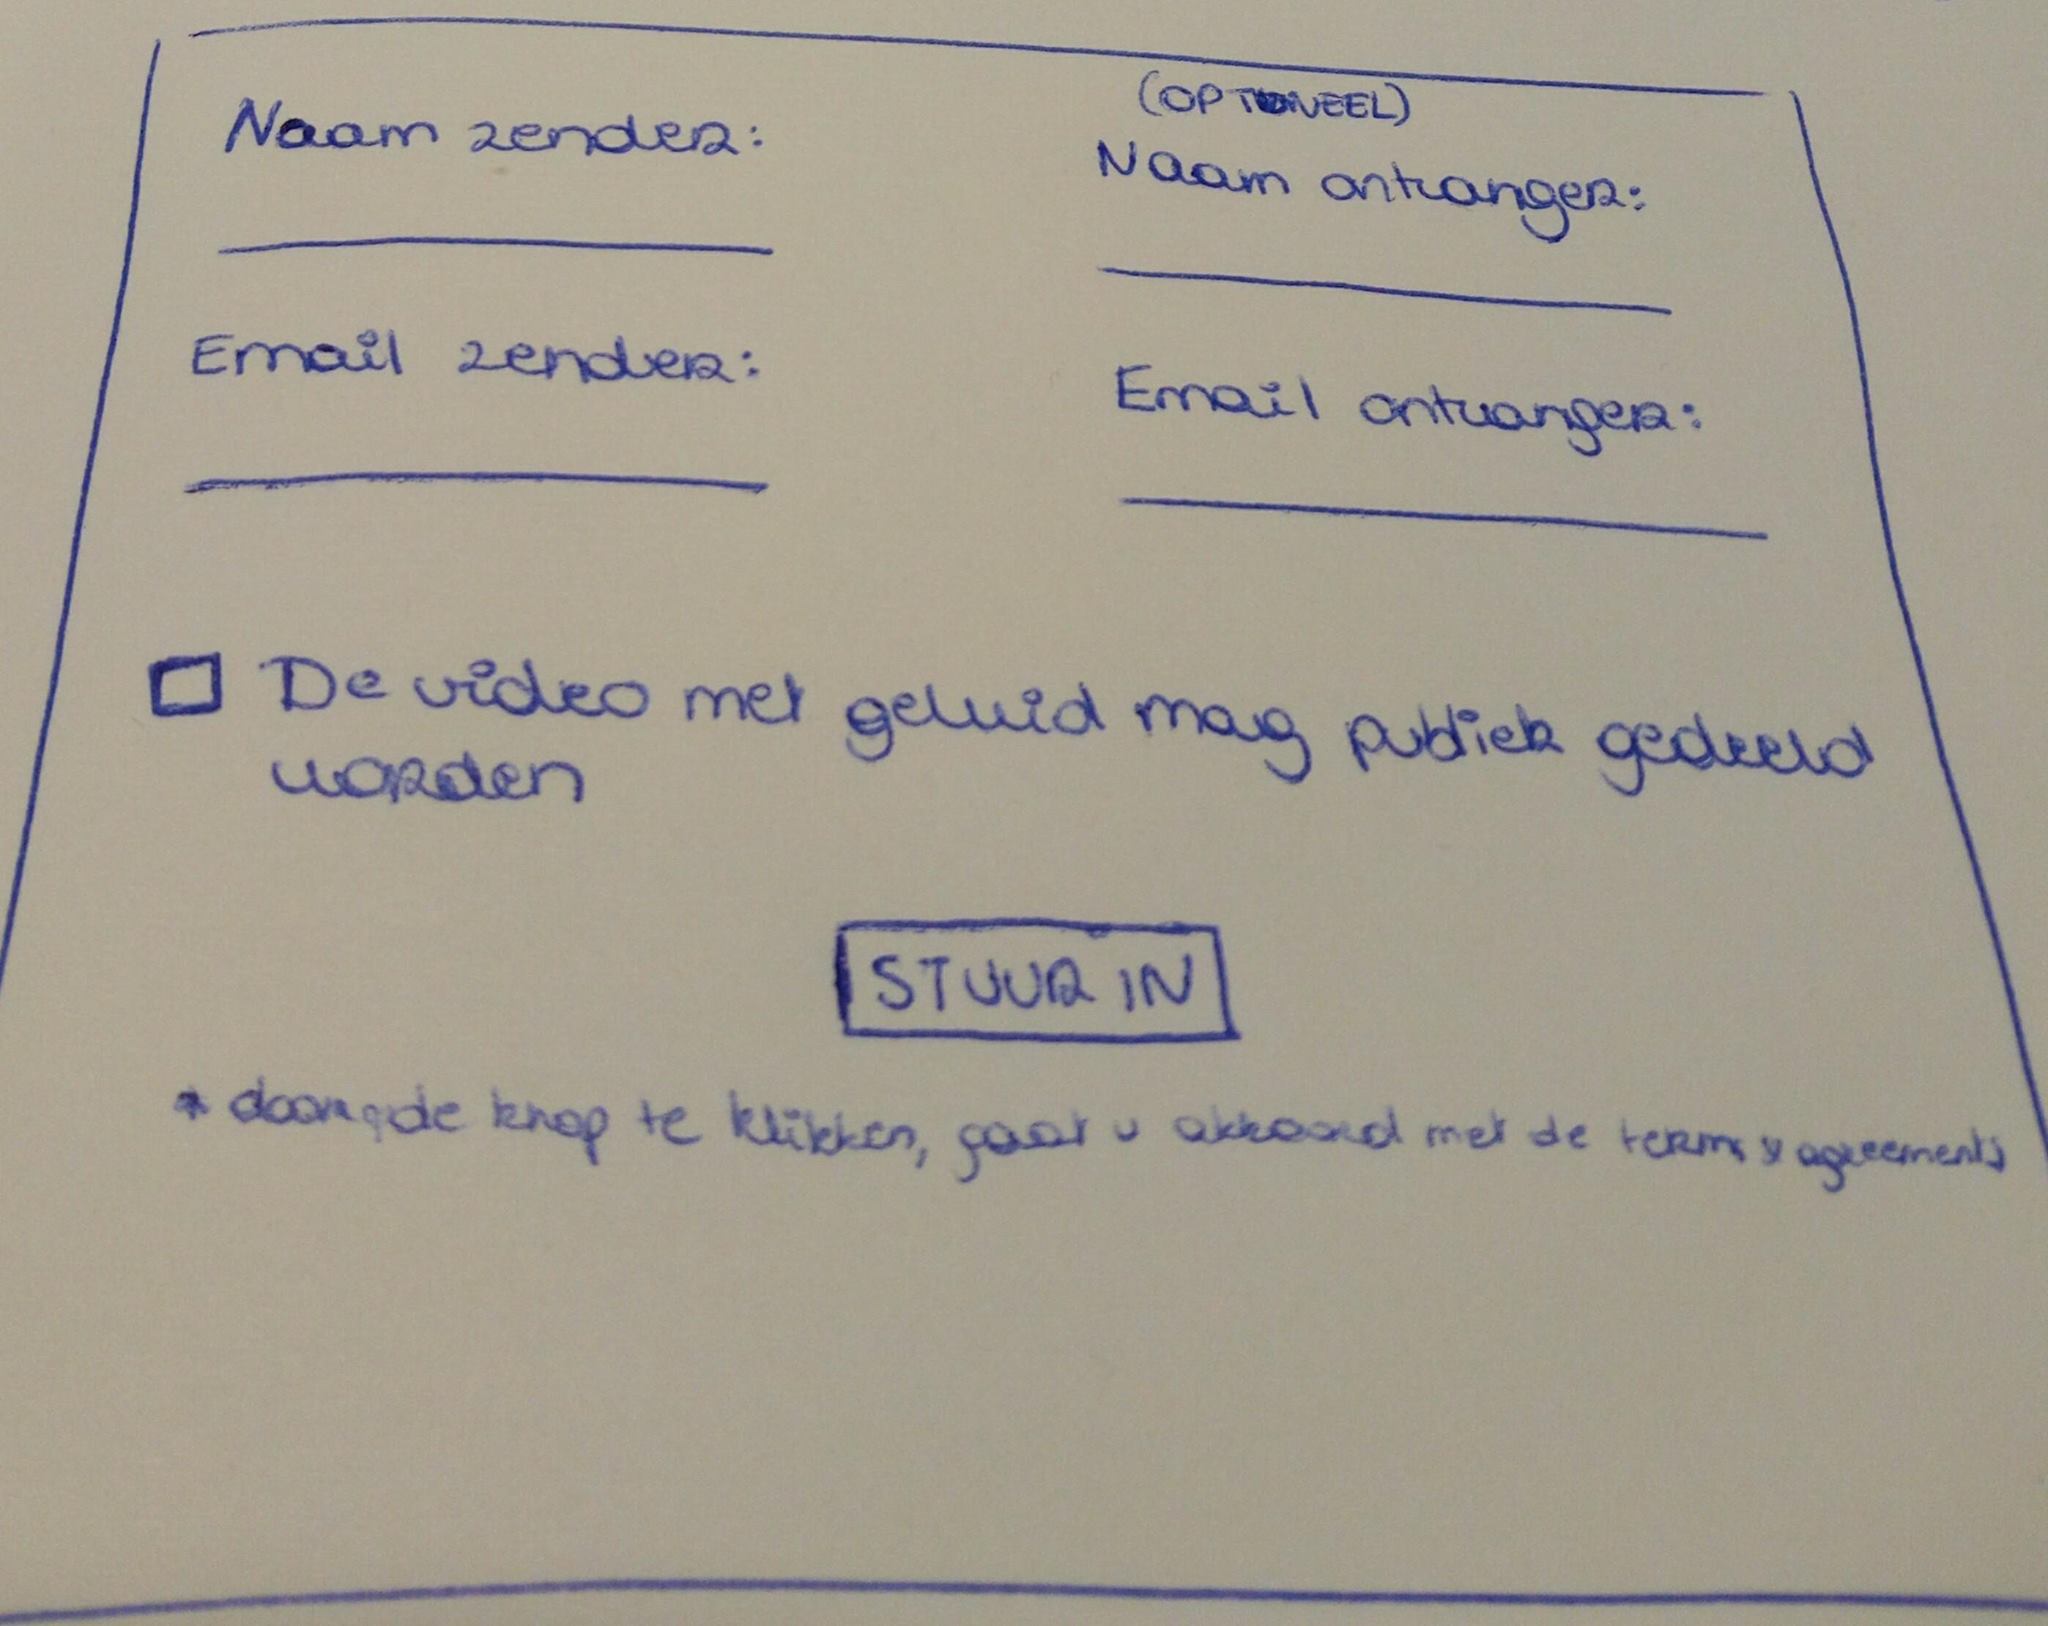 Naam zender:
(OPTIONEEL)
Naam ontvanger:
Email zender:
Email ontvanger:
De video met geluid mag publiek gedeeld
worden
STUUR IN
* door de knop te klikken, gaat u akkoord met de terms & agreements